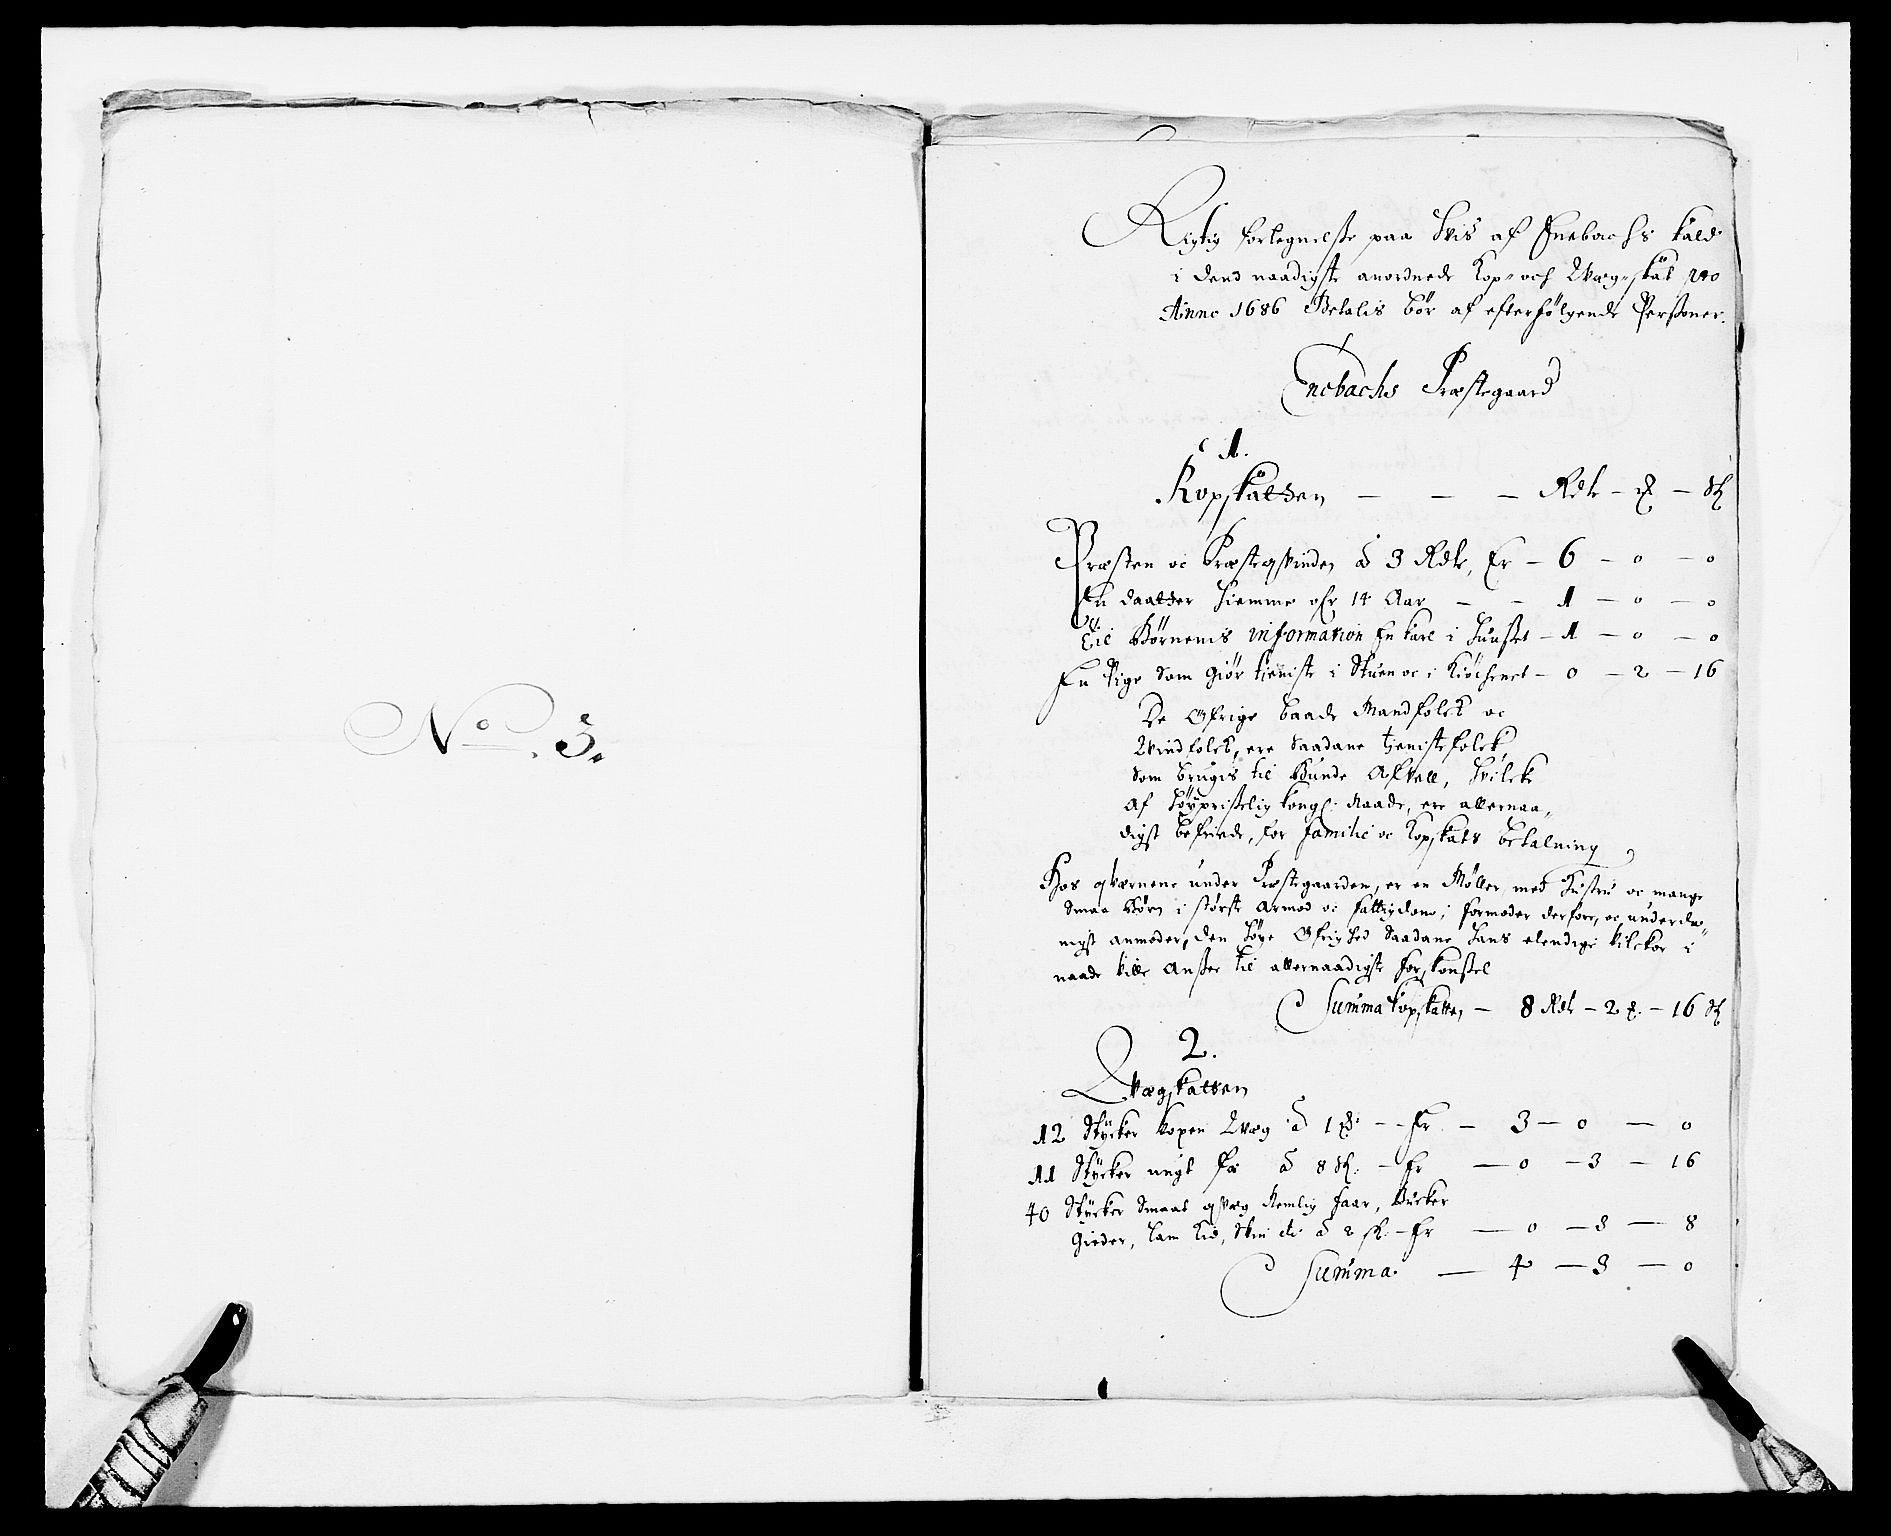 No 3.
Rigtig fortegnelsse paa hvis af Enebachs kald
i dend naadigste anordnede Kop- och Qvæg-skat pro
Anno 1686 Betalis bør af efterfølgende Perssoner.
Enebachs Præstegaard
1.
Kopskatten — — — Rdlr — ℔ — sk
Præsten oc Præsteqvinden à 3 Rdlr, Er — 6 — 0 — 0
En daatter hiemme ofr 14 Aar — — 1 — 0 — 0
Til Børnenis information En karl i huusset — 1 — 0 — 0
En Pige som giør tieniste i Stuen oc i Kiøchenet — 0 — 2 — 16
De øfrige baade Mandfolck oc
Qvindfolck, ere saadane tienistefolck
som brugis til Bunde Afvell, hvilcke
af høypriselig kongl: Naade, ere allernaa-
digst befriede, for familie oc Kopskats betalning
Hos qværnene under Præstegaarden, er en Møller med hustru oc mange
smaa børn i største armod oc fattigdom; formoder derfore, oc underda-
nigst anmoder, den høye Øfrighed saadane hans elendige vilckor i
naade ville ansee til allernaadigste forskonssel
Summa kopskatten — 8 Rdlr — 2 ℔. — 16 sk
2.
Qvægskatten
12 Stycker voxen Qvæg à 1 ℔. — Er — 3 — 0 — 0
11 Stycker ungt fæ à 8 sk. — Er — 0 — 3 — 16
40 Stycker smaat qvæg Nemlig faar, Bucker
Gieder, Lam Kid, Sviin etc à 2 sk. — Er — 0 — 3 — 8
Summa. — 4 — 3 — 0